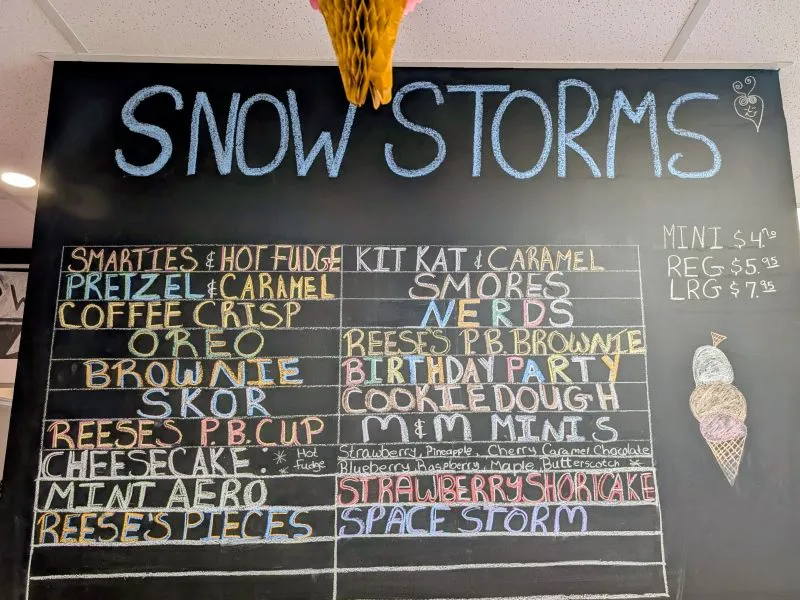 SNOW STORMS
MINI $4.
REG $5.95
LRG $7.95
SMARTIES & HOT FUDGE
KIT KAT & CARAMEL
PRETZEL & CARAMEL
SMORES
COFFEE CRISP
NERDS
OREO
REESE'S P.B. BROWNIE
BROWNIE
BIRTHDAY PARTY
SKOR
COOKIEDOUGH
REESES P.B. CUP
M&M MINIS
CHEESECAKE: * Hot Fudge
Strawberry, Pineapple, Cherry Caramel Chocolate
Blueberry, Raspberry, Maple, Butterscotch *
MINT AERO
STRAWBERRY SHORTCAKE
REESE'S PIECES
SPACE STORM